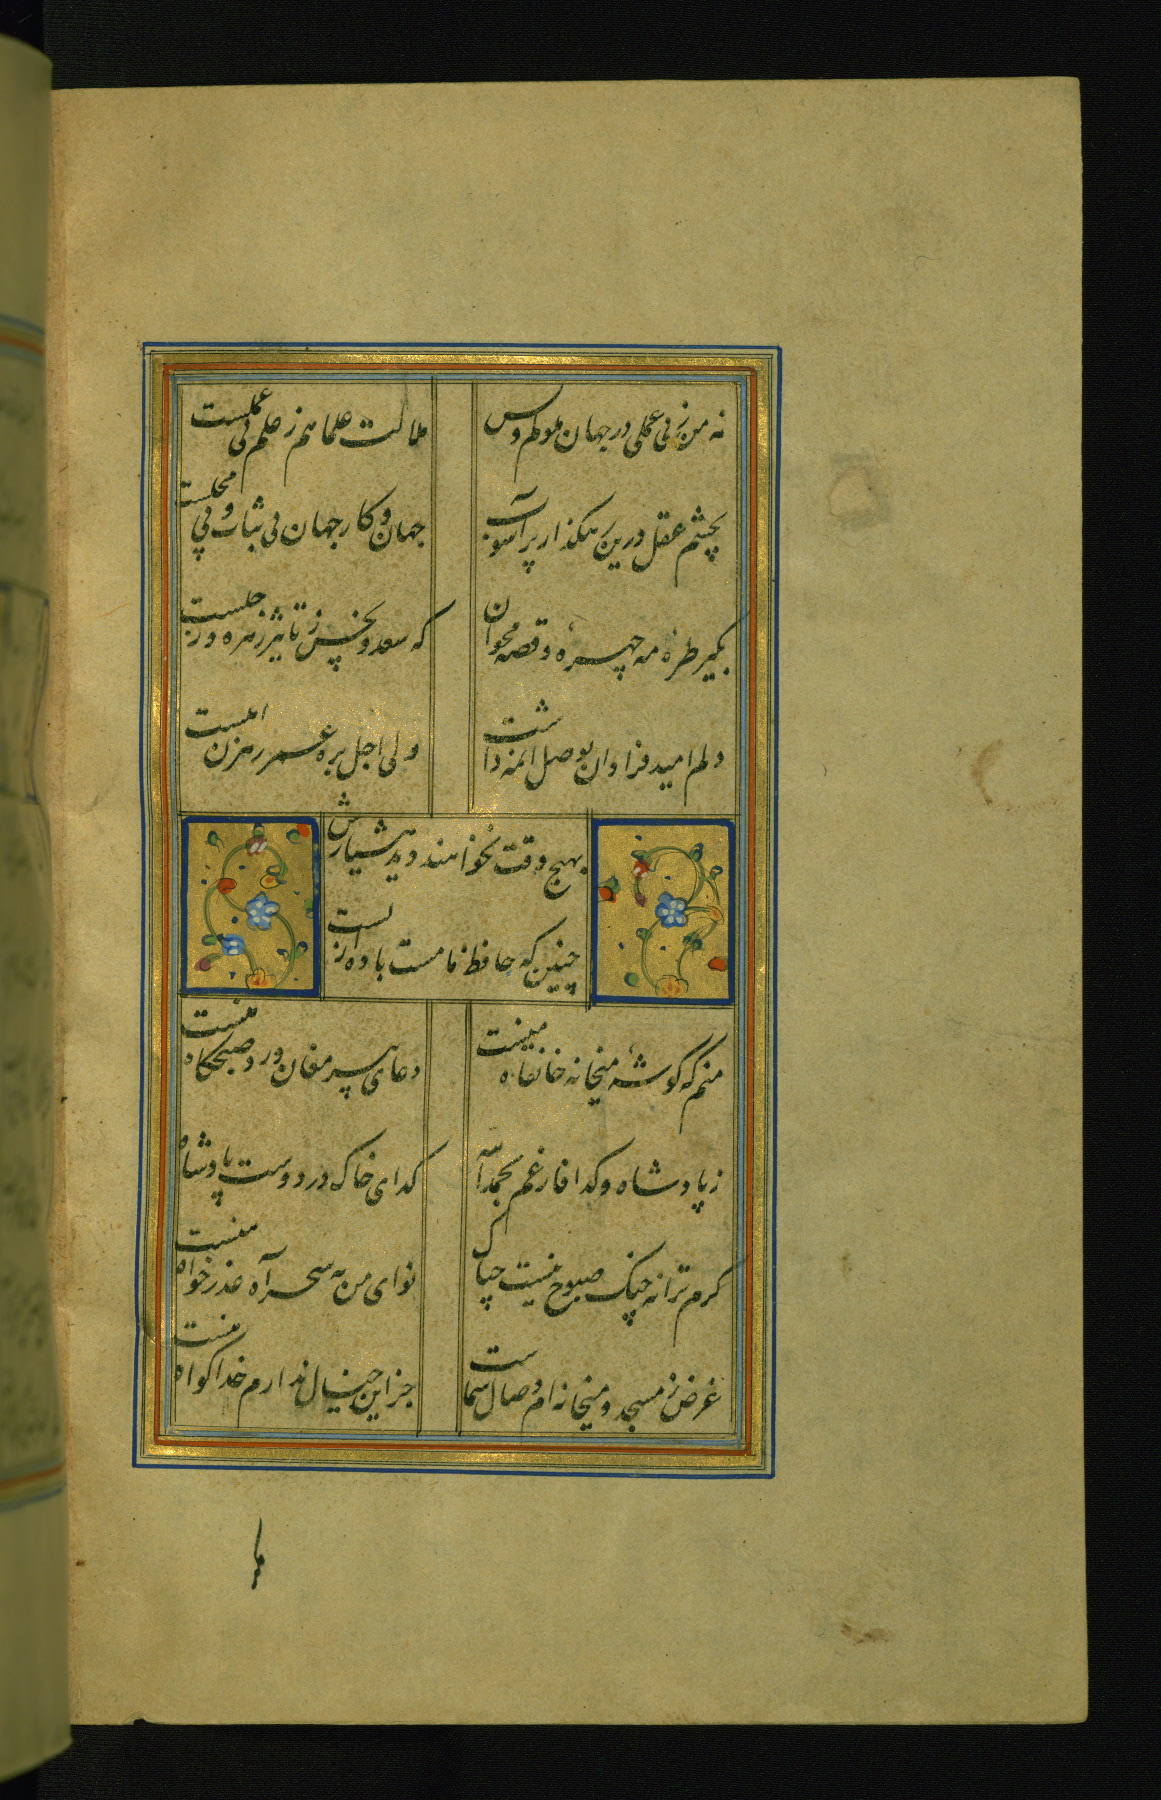 نه من ز بی عملی در جهان ملولم و بس
ملالت علما هم ز علم بی عملست
بچشم عقل درین رهگذار پر آشوب
جهان و کار جهان بی ثبات و بی محلست
بگیر طره مه چهره و قصه مخوان
که سعد و نحس ز تاثیر زهره و زحلست
دلم امید فراوان بوصل
داشت
ولی اجل بره عمر رهزن املست
بهیچ وقت نخواهند دید هشیارش
چنین که حافظ ما مست باده ازلست
منم که گوشه میخانه خانقاه منست
دعای پیر مغان ورد صبحگاه منست
ز پادشاه و گدا فارغم بحمدالله
گدای خاک در دوست پادشاه منست
گرم ترانه چنگ صبوح نیست چه باک
نوای من به سحر آه عذر خواه منست
غرض ز مسجد و میخانه ام وصال شماست
جز این خیال ندارم خدا گواه منست